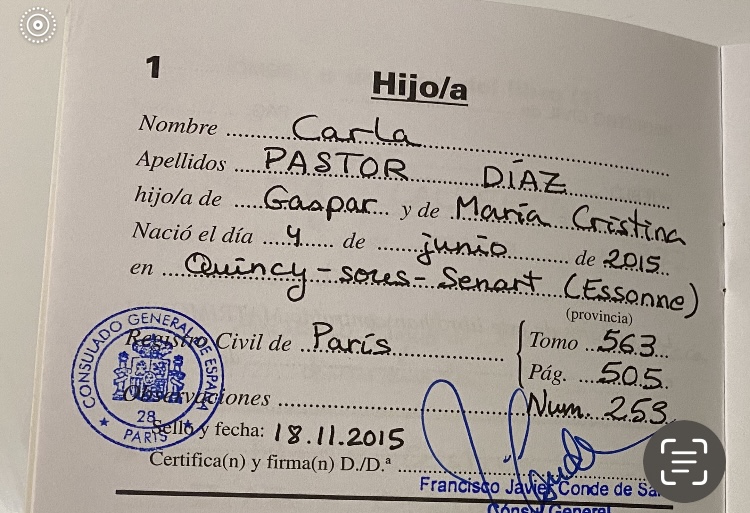 1
Hijo/a
Nombre Carla
Apellidos PASTOR DÍAZ
hijo/a de Gaspar y de María Cristina
Nació el día 4 de junio de 2015
en Quincy-sous-Senart (Essonne)
(provincia)
Registro Civil de París
Tomo 563
Pág. 505
Observaciones Num. 253
CONSULADO GENERAL DE ESPAÑA
28
PARIS
Sello y fecha: 18.11.2015
Certifica(n) y firma(n) D./D.ª
Francisco Javier Conde de
Cónsul General